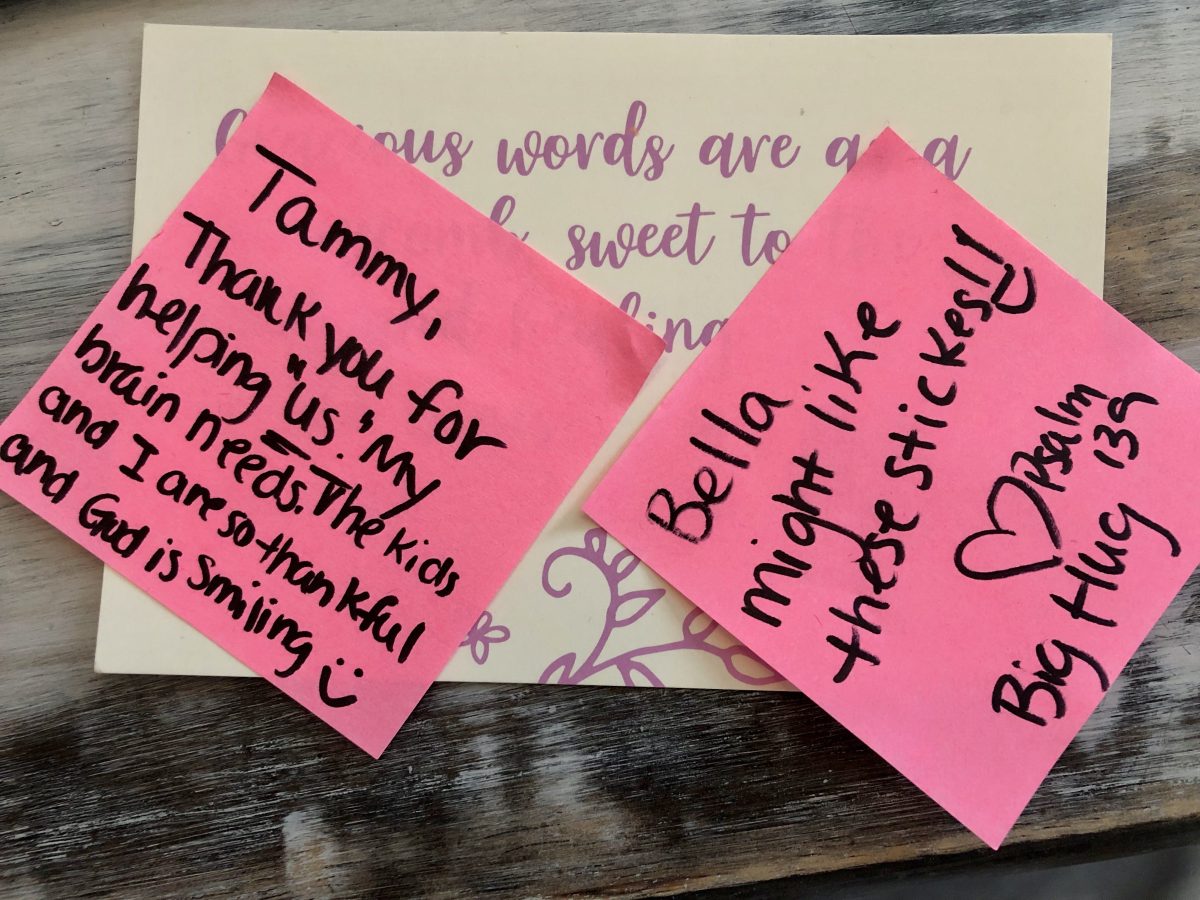 words are a
sweet to
Tammy,
Thank you for
helping "us." My
brain needs. The kids
and I are so thankful
and God is Smiling
Bella
might like
these stickes!!
Psalm
139
Big Hug